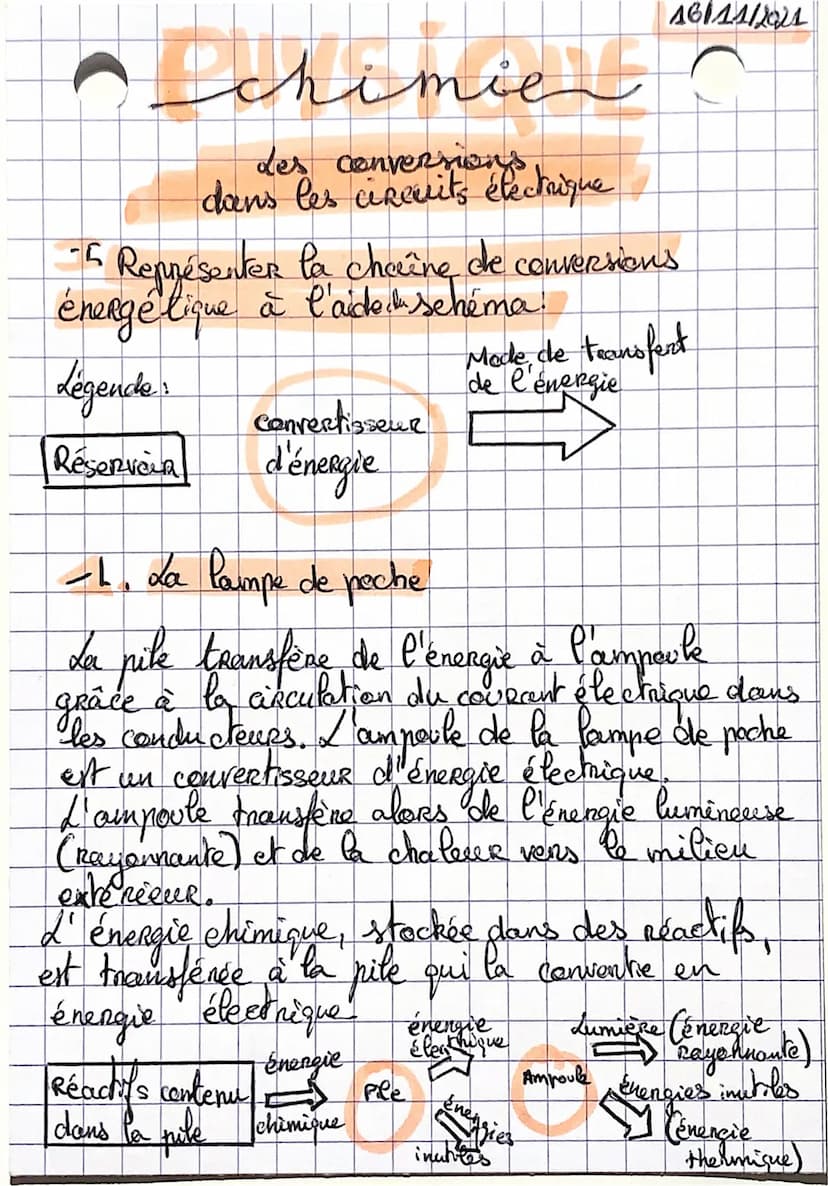 16/11/2021
PHYSIQUE
chimie
Les conversions
dans les circuits électrique
Représenter la chaîne de conversions
énergétique à l'aide du schéma:
Légende:
Réservoir
Convertisseur
d'énergie
Mode de transfert
de l'énergie
1. La lampe de poche
La pile transfère de l'énergie à l'ampoule
grâce à la circulation du courant électrique dans
les conducteurs. L'ampoule de la lampe de poche
est un convertisseur d'énergie électrique.
L'ampoule transfère alors de l'énergie lumineuse
(rayonnante) et de la chaleur vers le milieu
extérieur.
L'énergie chimique, stockée dans des réactifs,
est transférée à la pile qui la convertie en
énergie électrique
Réactifs contenu
dans la pile
énergie
chimique
Pile
énergie
électrique
énergies
inutiles
Ampoule
Lumière (énergie
rayonnante)
énergies inutiles
(énergie
thermique)